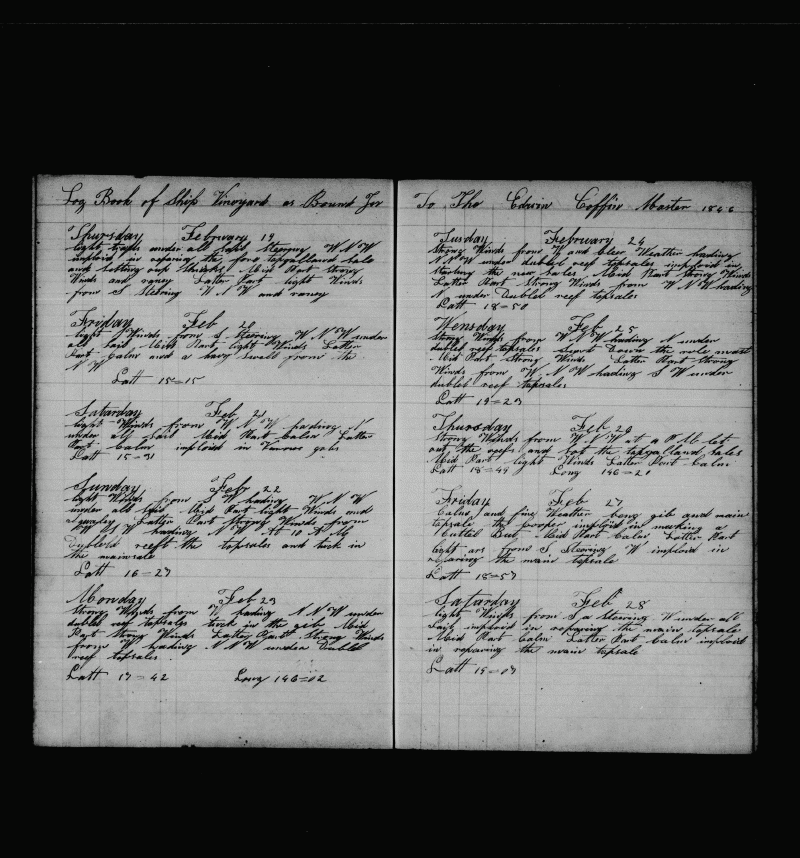 Log Book of Ship Vineyard as Bound For
Thursday February 19
light trades under all sail Steering W N W
imploid in reparing the fore topgalland sale
and setting up Mid Part strong
Winds and raney Latter Part light Winds
from S Stering W N W and raney
Friday Feb 20
light Winds from S Stering W N W under
all sail Midd Part light Winds Latter
Part Calm and a havy Swell from the
N W
Latt 15=15
Saturday Feb 21
light Winds from W N W heading N
under all sail Mid Part Calm Latter
Part Calm imploid in gobs
Latt 15=31
Sunday Feb 22
light Winds from S W heading W N W
under all sail Mid Part light Winds and
Squaley Latter Part strong Winds from
W heading N N W At 10 A M
dubled reeft the topsales and tuck in
the mainsale
Latt 16=27
Monday Feb 23
strong Winds from W heading N N W under
dubled reef topsales tuck in the gibe Mid
Part strong Winds Latter Part Strong Winds
from W heading N N W under dubled
reef topsales
Latt 17=42 Long 146=02
To Tho Edwin Coffin Master 1846
Tusday February 24
strong Winds from W and Clear Weather heading
N N W under dubled reef topsales imploid in
the new sales Mid Part strong Winds
Latter Part Strong Winds from W N W heading
N under dubled reef topsales
Latt 18=50
Wensday Feb 25
Strong Winds from W N W heading N under
dubled reef topsales down the
Mid Part strong Winds Latter Part strong
Winds from W N W heading S W under
dubled reef topsales
Latt 19=23
Thursday Feb 26
Strong Winds from W N W at 2 P M let
out the reefs and set the topgalland sales
Mid Part light Winds Latter Part Calm
Latt 18=49 Long 146=21
Friday Feb 27
Calms and fine Weather beng gib and main
topsale the Cooper imploid in making a
Mid Part Calm Latter Part
light ars from S Stearing W imploid in
reparing the main topsale
Latt 18=57
Saturday Feb 28
light Winds from S a stewing W under all
Sail imploid in reparing the main topsale
Mid Part Calm Latter Part Calm imploid
in reparing the main topsale
Latt 19=07